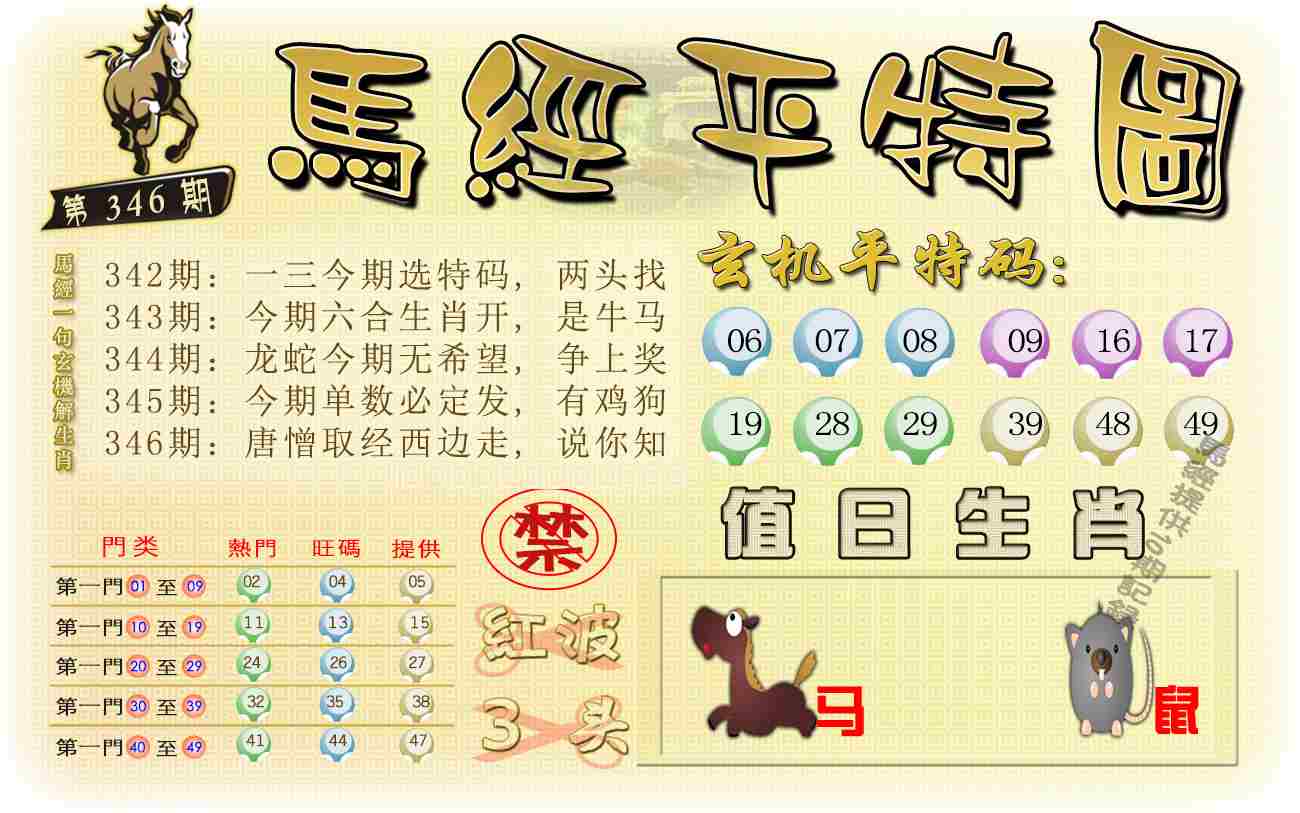 馬經平特圖
第 346 期
馬經一句玄機解生肖
342期：一三今期选特码，两头找
343期：今期六合生肖开，是牛马
344期：龙蛇今期无希望，争上奖
345期：今期单数必定发，有鸡狗
346期：唐憎取经西边走，说你知
玄机平特码：
06 07 08 09 16 17
19 28 29 39 48 49
值日生肖
馬經提供10期記錄
马 鼠
門类 熱門 旺碼 提供
第一門 01 至 09 02 04 05
第一門 10 至 19 11 13 15
第一門 20 至 29 24 26 27
第一門 30 至 39 32 35 38
第一門 40 至 49 41 44 47
禁
红波
3头